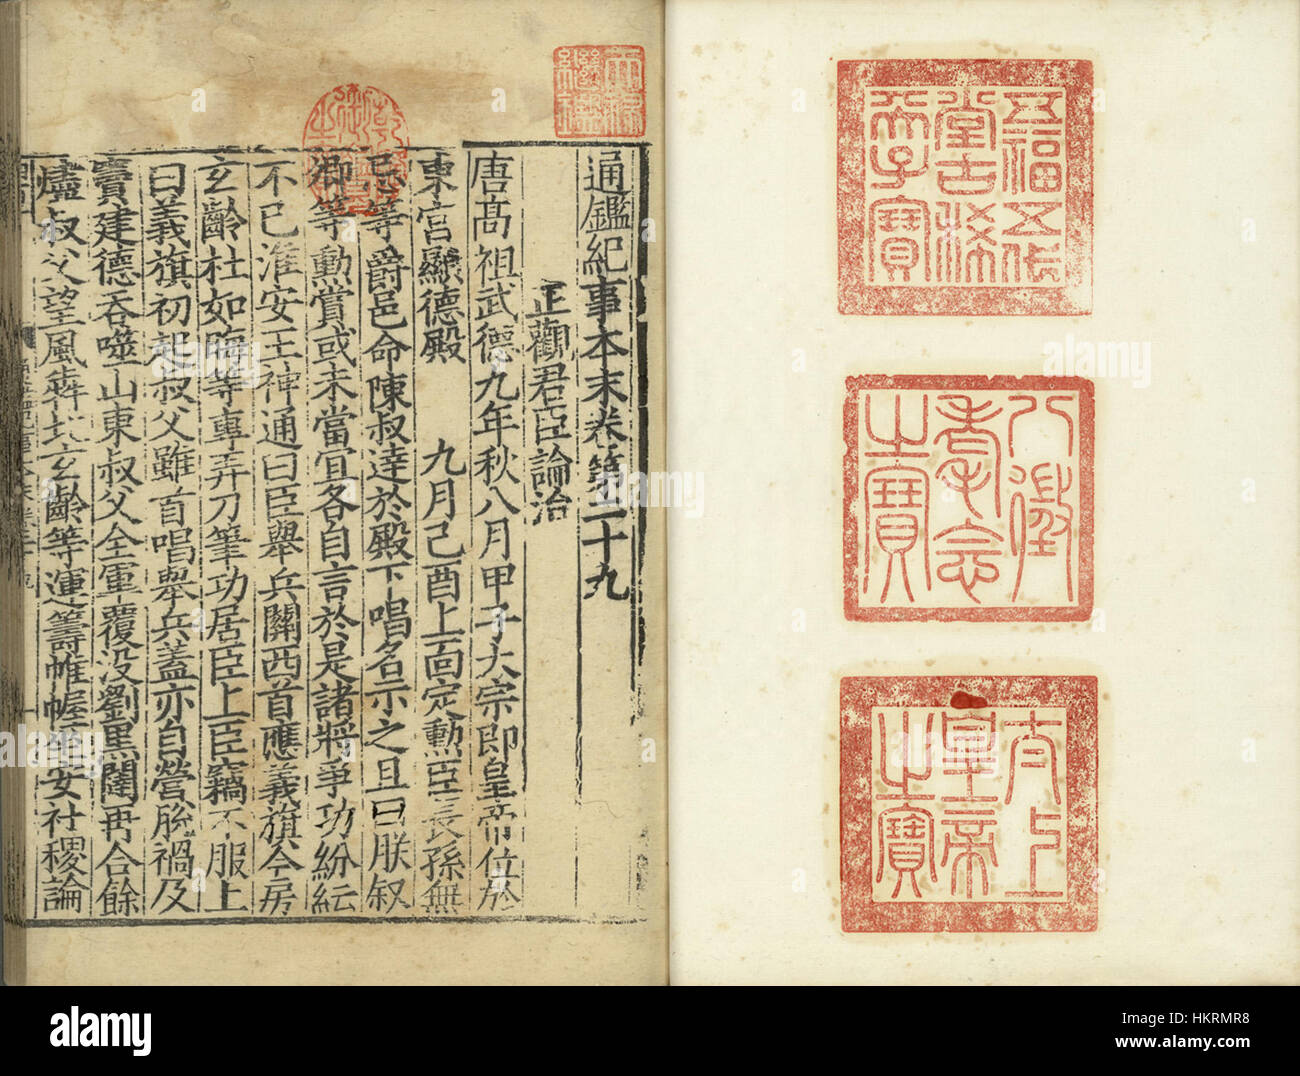 五福五代
堂古稀
天子寶
八徵
耄念
之寶
太上
皇帝
之寶
天祿
繼鑑
通鑑紀事本末卷第二十九
正觀君臣論治
唐高祖武德九年秋八月甲子太宗即皇帝位於
東宮顯德殿 九月己酉上面定勲臣長孫無
忌等爵邑命陳叔達於殿下唱名示之且曰朕叙
卿等勳賞或未當宜各自言於是諸將爭功紛紜
不已淮安王神通曰臣舉兵關西首應義旗今房
玄齡杜如晦等專弄刀筆功居臣上臣竊不服上
曰義旗初起叔父雖首唱舉兵蓋亦自營脫禍及
竇建德吞噬山東叔父全軍覆没劉黑闥再合餘
燼叔父望風奔北玄齡等運籌帷幄坐安社稷論
alamy
alamy
Image ID: HKRMR8
www.alamy.com